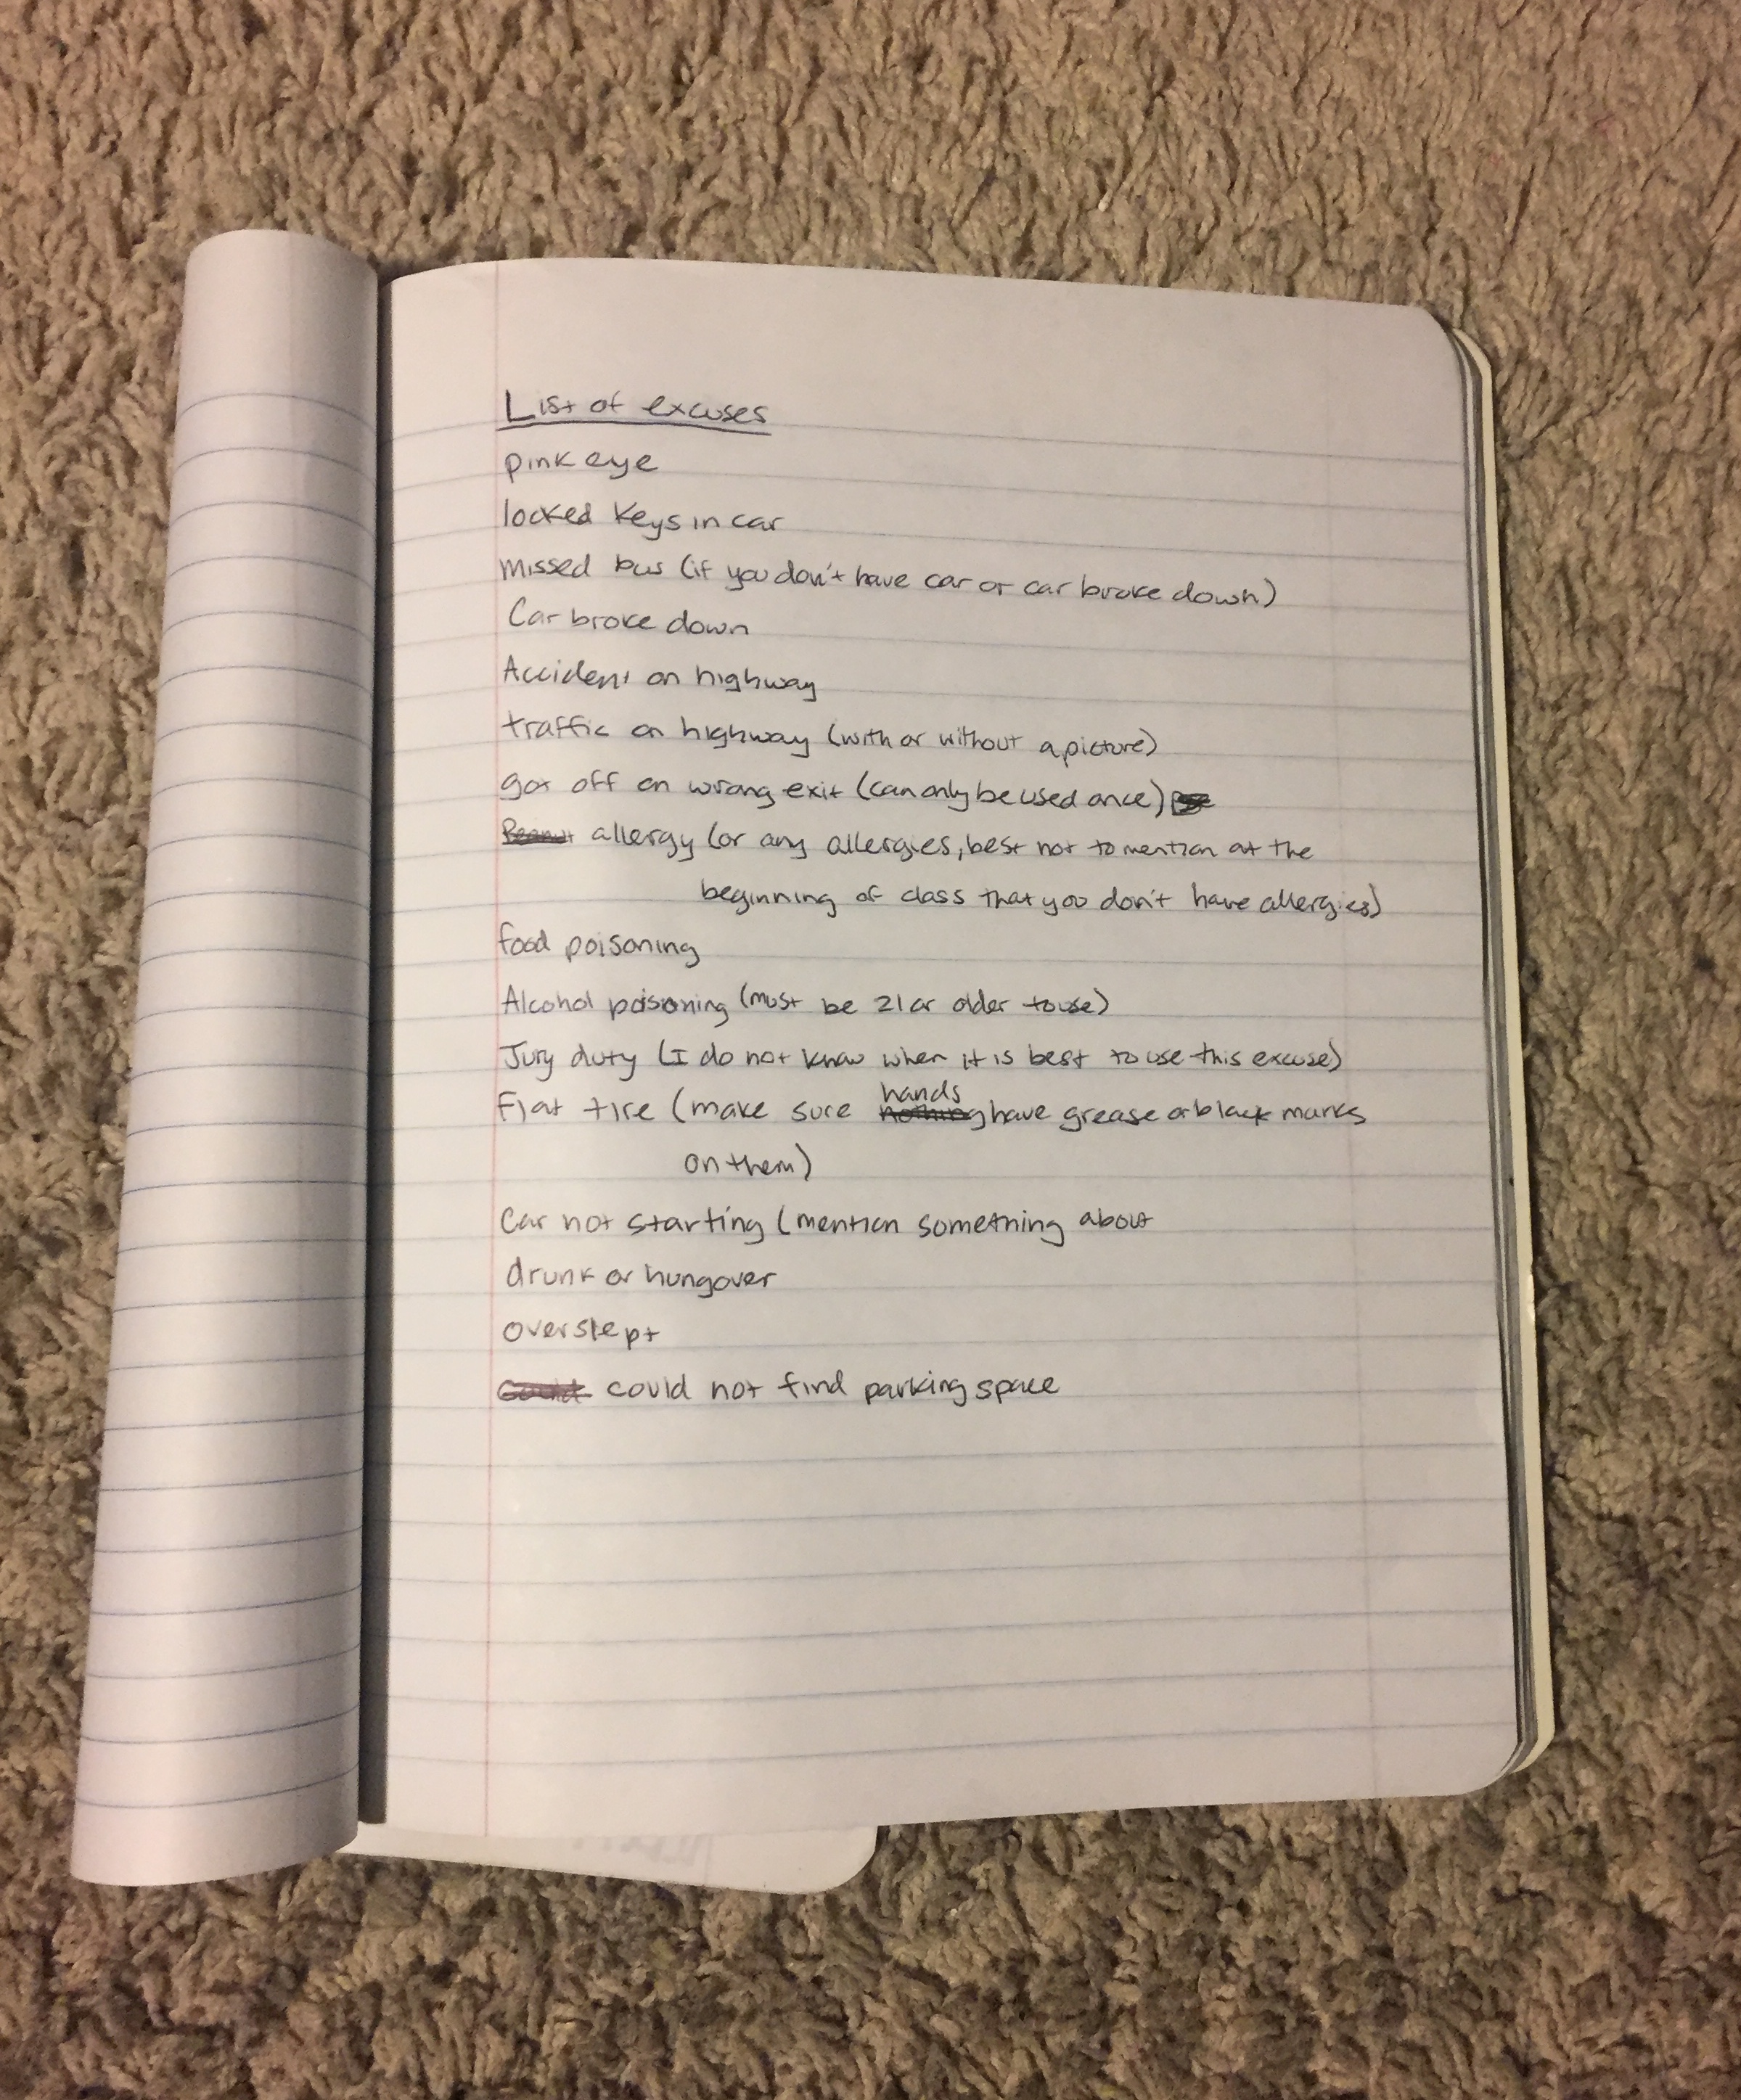 List of excuses
pink eye
locked keys in car
missed bus (if you don't have car or car broke down)
Car broke down
Accident on highway
traffic on highway (with or without a picture)
got off on wrong exit (can only be used once)
Peanut allergy (or any allergies, best not to mention at the
beginning of class that you don't have allergies)
food poisoning
Alcohol poisoning (must be 21 or older to use)
Jury duty (I do not know when it is best to use this excuse)
hands
Flat tire (make sure nothing have grease or black marks
on them)
Car not starting (mention something about
drunk or hungover
overslept
Could could not find parking space